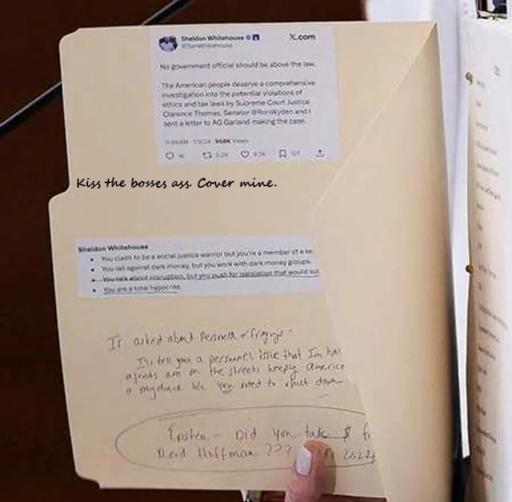 Sheldon Whitehouse
X.com
@SenWhitehouse
No government official should be above the law.
The American people deserve a comprehensive
investigation into the potential violations of
ethics and tax laws by Supreme Court Justice
Clarence Thomas. Senator @RonWyden and I
sent a letter to AG Garland making the case.
Views
Kiss the bosses ass. Cover mine.
Sheldon Whitehouse
• You claim to be a social justice warrior but you're a member of a
• You rail against dark money, but you work with dark money groups.
• You talk about corruption, but you push for legislation that would
• You are a total hypocrite.
If asked about
I'll tell you a personnel issue that I'm
agents are on the streets keeping America
you voted to shut down
Epstein - Did you take $
Reid Hoffman ???